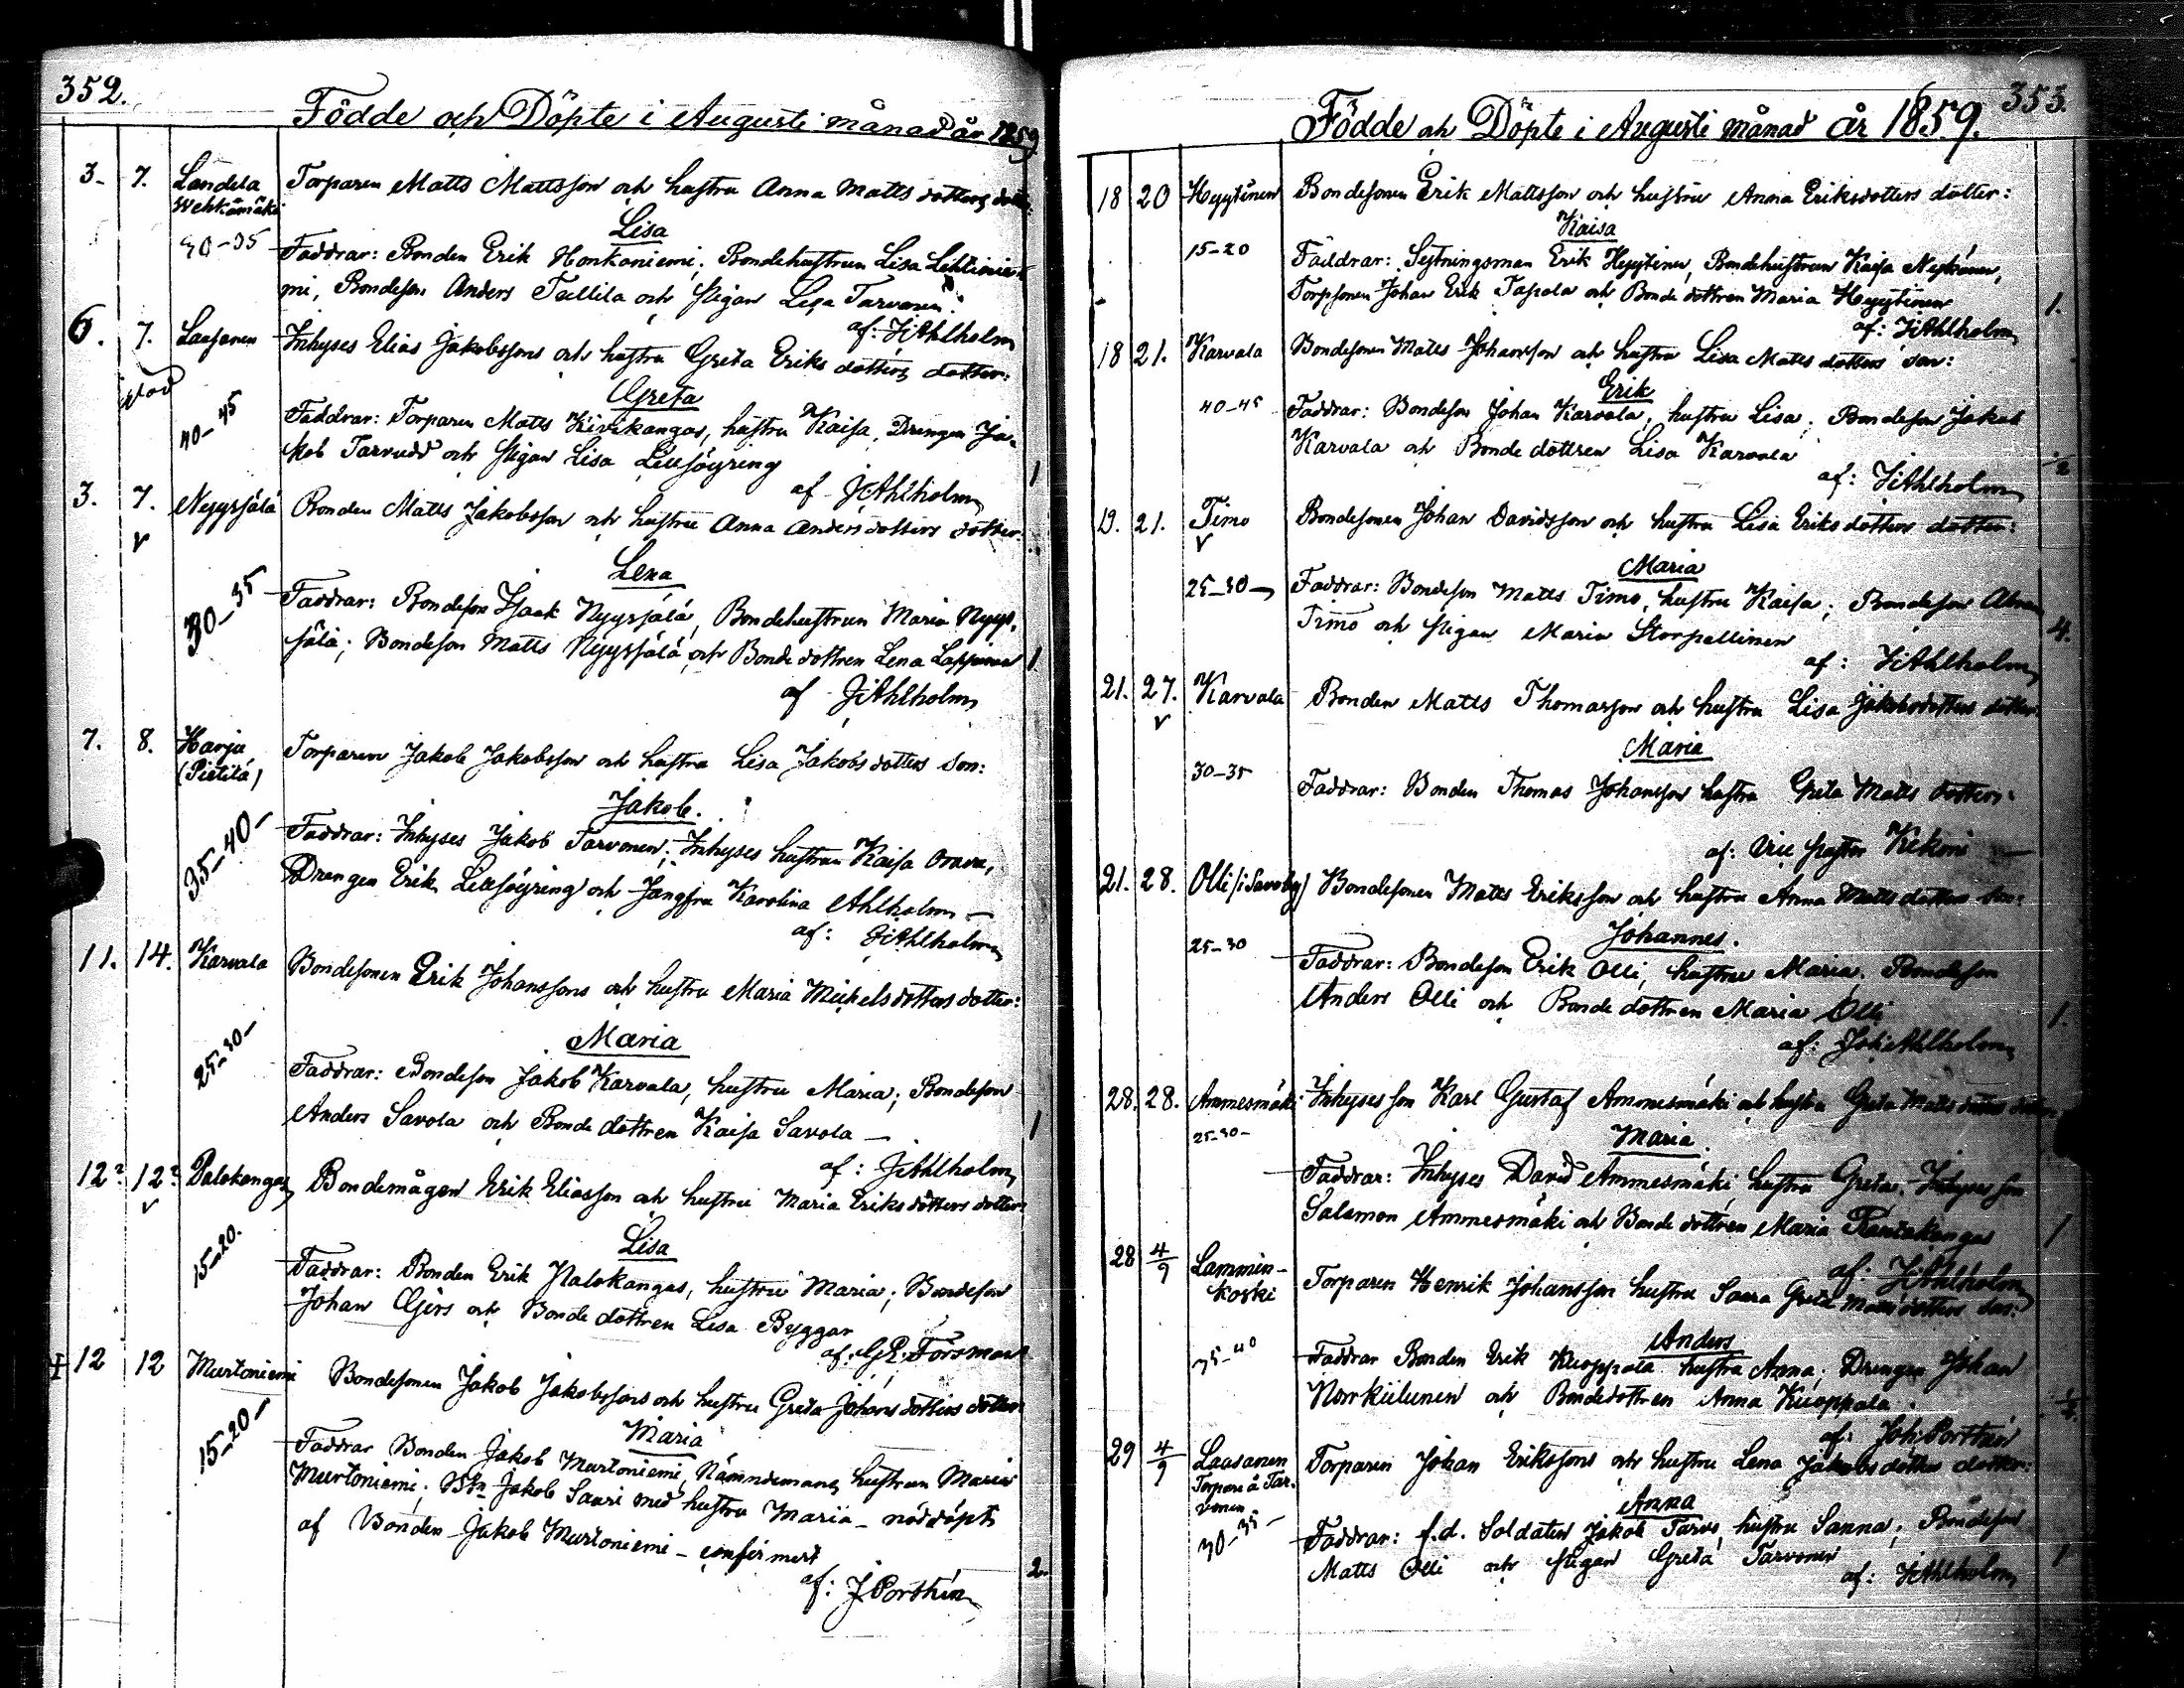 352.
Födde och Döpte i Augusti månad år 1859
3. 7. Landela Torparen Matts Mattsson och hustru Anna Matts dotters dotter:
Wehkämäki
Lisa
30-35 Faddrar: Bonden Erik Honkaniemi, Bondehustrun Lisa Lehtinie-
mi, Bondeson Anders Tullila och pigan Lisa Tarvonen.
af: J:Ahlholm
6. 7. Laasanen Inhyses Elias Jakobssons och hustru Greta Eriks dotters dotter:
Greta
40-45 Faddrar: Torparen Matts Kivikangas, hustru Kaisa, Drengen Ja-
kob Tarvudd och pigan Lisa Lillsöyring 1
af J:Ahlholm
3. 7. Nyysjälä Bonden Matts Jakobsson och hustru Anna Anders dotters dotter.
v
Lena
30-35 Faddrar: Bondeson Isaak Nyysjälä, Bondehustrun Maria Nyys-
jälä; Bondeson Matts Nyysjälä och Bonde dottren Lena Lappinen 1
af J:Ahlholm
7. 8. Harju Torparen Jakob Jakobsson och hustru Lisa Jakobs dotters son:
(Pietilä)
Jakob.
35-40- Faddrar: Inhyses Jakob Tarvonen; Inhyses hustrun Kaisa Orava,
Drengen Erik Lillsöyring och Jungfru Karolina Ahlholm -
af: J:Ahlholm
11. 14. Karvala Bondesonen Erik Johanssons och hustru Maria Mickelsdotters dotter:
Maria
25-30- Faddrar: Bondeson Jakob Karvala, hustru Maria; Bondeson
Anders Savola och Bonde dottren Kaisa Savola - 1
af: J:Ahlholm
12? 12? Palokangas Bondemågen Erik Eliasson och hustru Maria Eriks dotters dotter:
v
Lisa
15-20. Faddrar: Bonden Erik Palokangas, hustru Maria; Bondeson
Johan Girs och Bonde dottren Lisa Byggar
af: G.E. Forsman
12 12 Murtoniemi Bondesonen Jakob Jakobssons och hustru Greta Johans dotters dotter
Maria
15-20- Faddrar Bonden Jakob Murtoniemi, Nämndemans hustrun Maria
Murtoniemi; Bdn Jakob Saari med hustru Maria - nöddöpt
af Bonden Jakob Murtoniemi - confirmert 2.
af: J Porthén
353.
Födde och Döpte i Augusti månad år 1859.
18 20 Hyytinen Bondesonen Erik Mattsson och hustru Anna Eriksdotters dotter:
Kaisa
15-20 Faddrar: Sytningsman Erik Hyytinen, Bondehustrun Kaisa Nykänen,
Torpsonen Johan Erik Tapola och Bonde dottren Maria Hyytinen 1.
af: J:Ahlholm
18 21. Karvala Bondesonen Matts Johansson och hustru Lisa Matts dotters son:
Erik
40-45 Faddrar: Bondeson Johan Karvala, hustru Lisa; Bondeson Jakob
Karvala och Bonde dottren Lisa Karvala
af: J:Ahlholm
19. 21. Timo Bondesonen Johan Davidsson och hustru Lisa Eriks dotters dotter:
v
Maria
25-30- Faddrar: Bondeson Matts Timo, hustru Kaisa; Bondeson
Timo och pigan Maria Storpellinen 4.
af: J:Ahlholm
21. 27. Karvala Bonden Matts Thomasson och hustru Lisa Jakobsdotters dotter
v
Maria
30-35 Faddrar: Bonden Thomas Johansson hustru Greta Matts dotters.
af: Vice pastor Kekoni
21. 28. Olli (i Savoby) Bondesonen Matts Eriksson och hustru Anna Matts dotters son:
Johannes.
25-30 Faddrar: Bondeson Erik Olli, hustru Maria. Bondeson
Anders Olli och Bonde dottren Maria Olli 1.
af: Joh:Ahlholm
28. 28. Ammesmäki Inhyses son Karl Gustaf Ammesmäki och hustru Greta Matts dotters dotter
25-30-
Maria.
Faddrar: Inhyses David Ammesmäki, hustru Greta. Inhyses son
Salamon Ammesmäki och Bonde dottren Maria Rantakangas 1
af: J:Ahlholm
28 4/9 Lammin- Torparen Henrik Johansson hustru Saara Greta Matts dotters son:
koski
Anders
35-40 Faddrar Bonden Erik Kuoppala hustru Anna; Drengen Johan
Norrkiilunen och Bondedottren Anna Kuoppala.
af: Joh: Porthén
29 4/9 Laasanen Torparen Johan Erikssons och hustru Lena Jakobs dotters dotter:
Torpare å Tar-
vonen
Anna
30-35- Faddrar: f.d. Soldaten Jakob Tarvo, hustru Sanna; Bondeson
Matts Olli och pigan Greta Tarvonen 1
af: J:Ahlholm